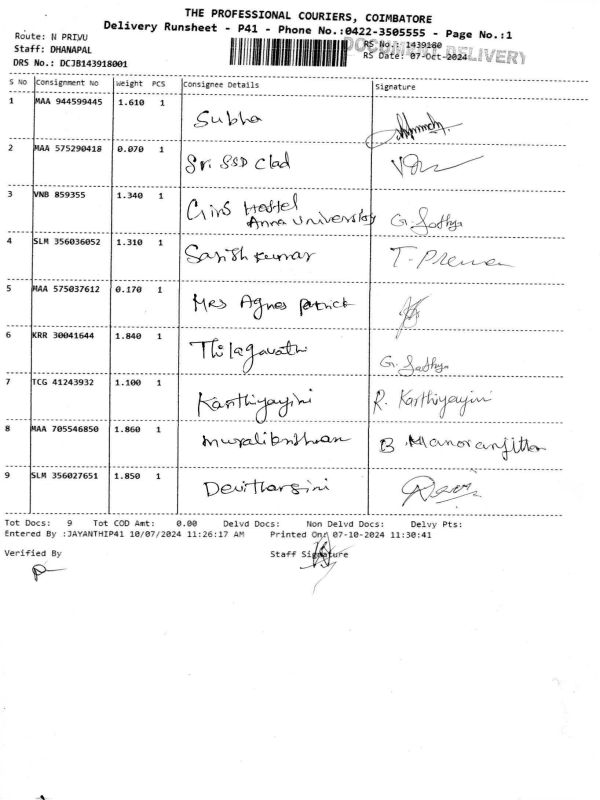 THE PROFESSIONAL COURIERS, COIMBATORE
Delivery Runsheet - P41 - Phone No.:0422-3505555 - Page No.:1
Route: N PRIVU
RS No.: 1439180
DOCUMENT DELIVERY
Staff: DHANAPAL
RS Date: 07-Oct-2024
DRS No.: DCJB143918001
S No Consignment No Weight PCS Consignee Details Signature
1 MAA 944599445 1.610 1 Subha
2 MAA 575290418 0.070 1 Sr. SSD Clad
3 VNB 859355 1.340 1 Girls Hostel
Anna University G. Sathya
4 SLM 356036052 1.310 1 Sarish kumar T. Prema
5 MAA 575037612 0.170 1 Mrs Agnes Patrick
6 KRR 30041644 1.840 1 Thilagavathi G. Sathya
7 TCG 41243932 1.100 1 Karthiyayini R. Karthiyayini
8 MAA 705546850 1.860 1 B Manoranjitha
9 SLM 356027651 1.850 1 Devitharsini Devi
Tot Docs: 9 Tot COD Amt: 0.00 Delvd Docs: Non Delvd Docs: Delvy Pts:
Entered By :JAYANTHIP41 10/07/2024 11:26:17 AM Printed On: 07-10-2024 11:30:41
Verified By Staff Signature